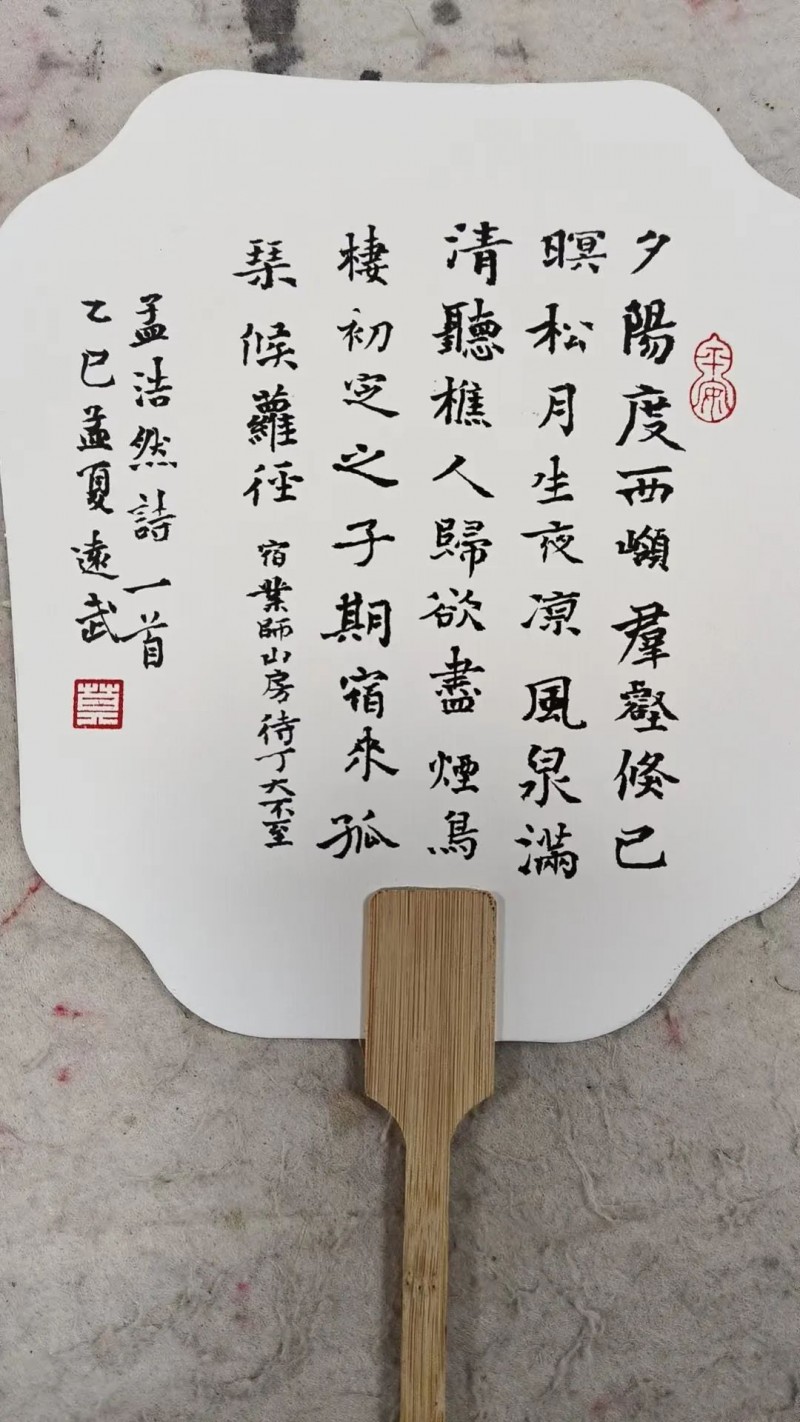 平安
夕陽度西嶺羣壑倐已
暝松月生夜凉風泉滿
清聽樵人歸欲盡煙鳥
棲初定之子期宿來孤
琹候蘿徑宿業師山房待丁大不至
孟浩然詩一首
乙巳孟夏遠武